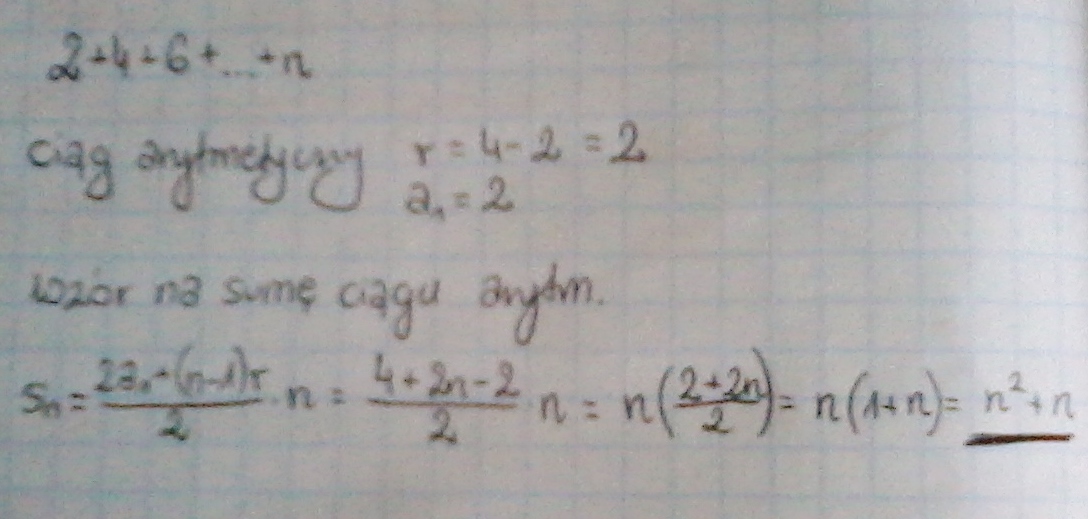 2+4+6+...+n
ciąg arytmetyczny r = 4-2 = 2
a₁ = 2
wzór na sumę ciągu arytm.
Sₙ = \frac{2a₁+(n-1)r}{2}·n = \frac{4+2n-2}{2}·n = n(\frac{2+2n}{2}) = n(1+n) = n²+n